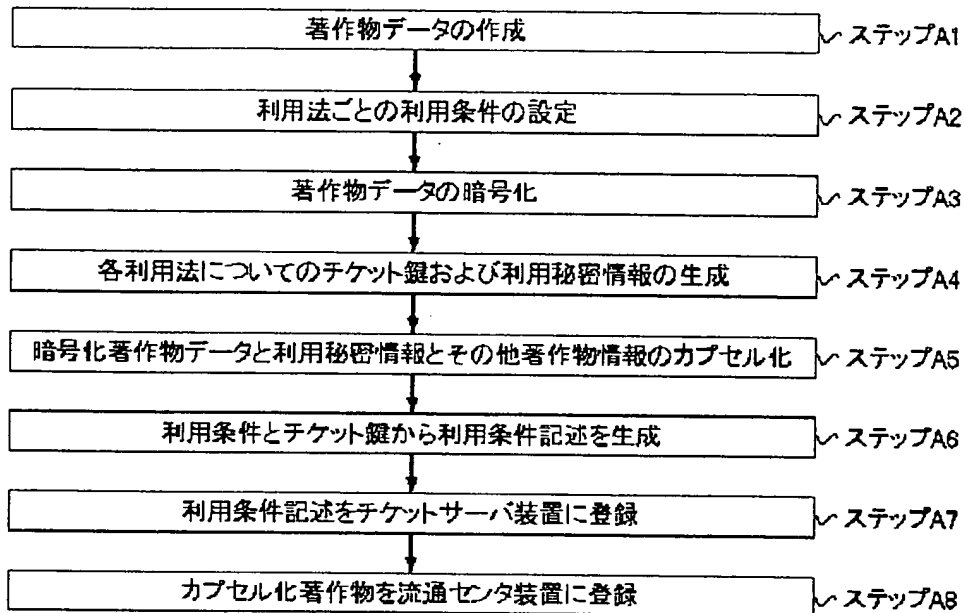 著作物データの作成 ステップA1
利用法ごとの利用条件の設定 ステップA2
著作物データの暗号化 ステップA3
各利用法についてのチケット鍵および利用秘密情報の生成 ステップA4
暗号化著作物データと利用秘密情報とその他著作物情報のカプセル化 ステップA5
利用条件とチケット鍵から利用条件記述を生成 ステップA6
利用条件記述をチケットサーバ装置に登録 ステップA7
カプセル化著作物を流通センタ装置に登録 ステップA8